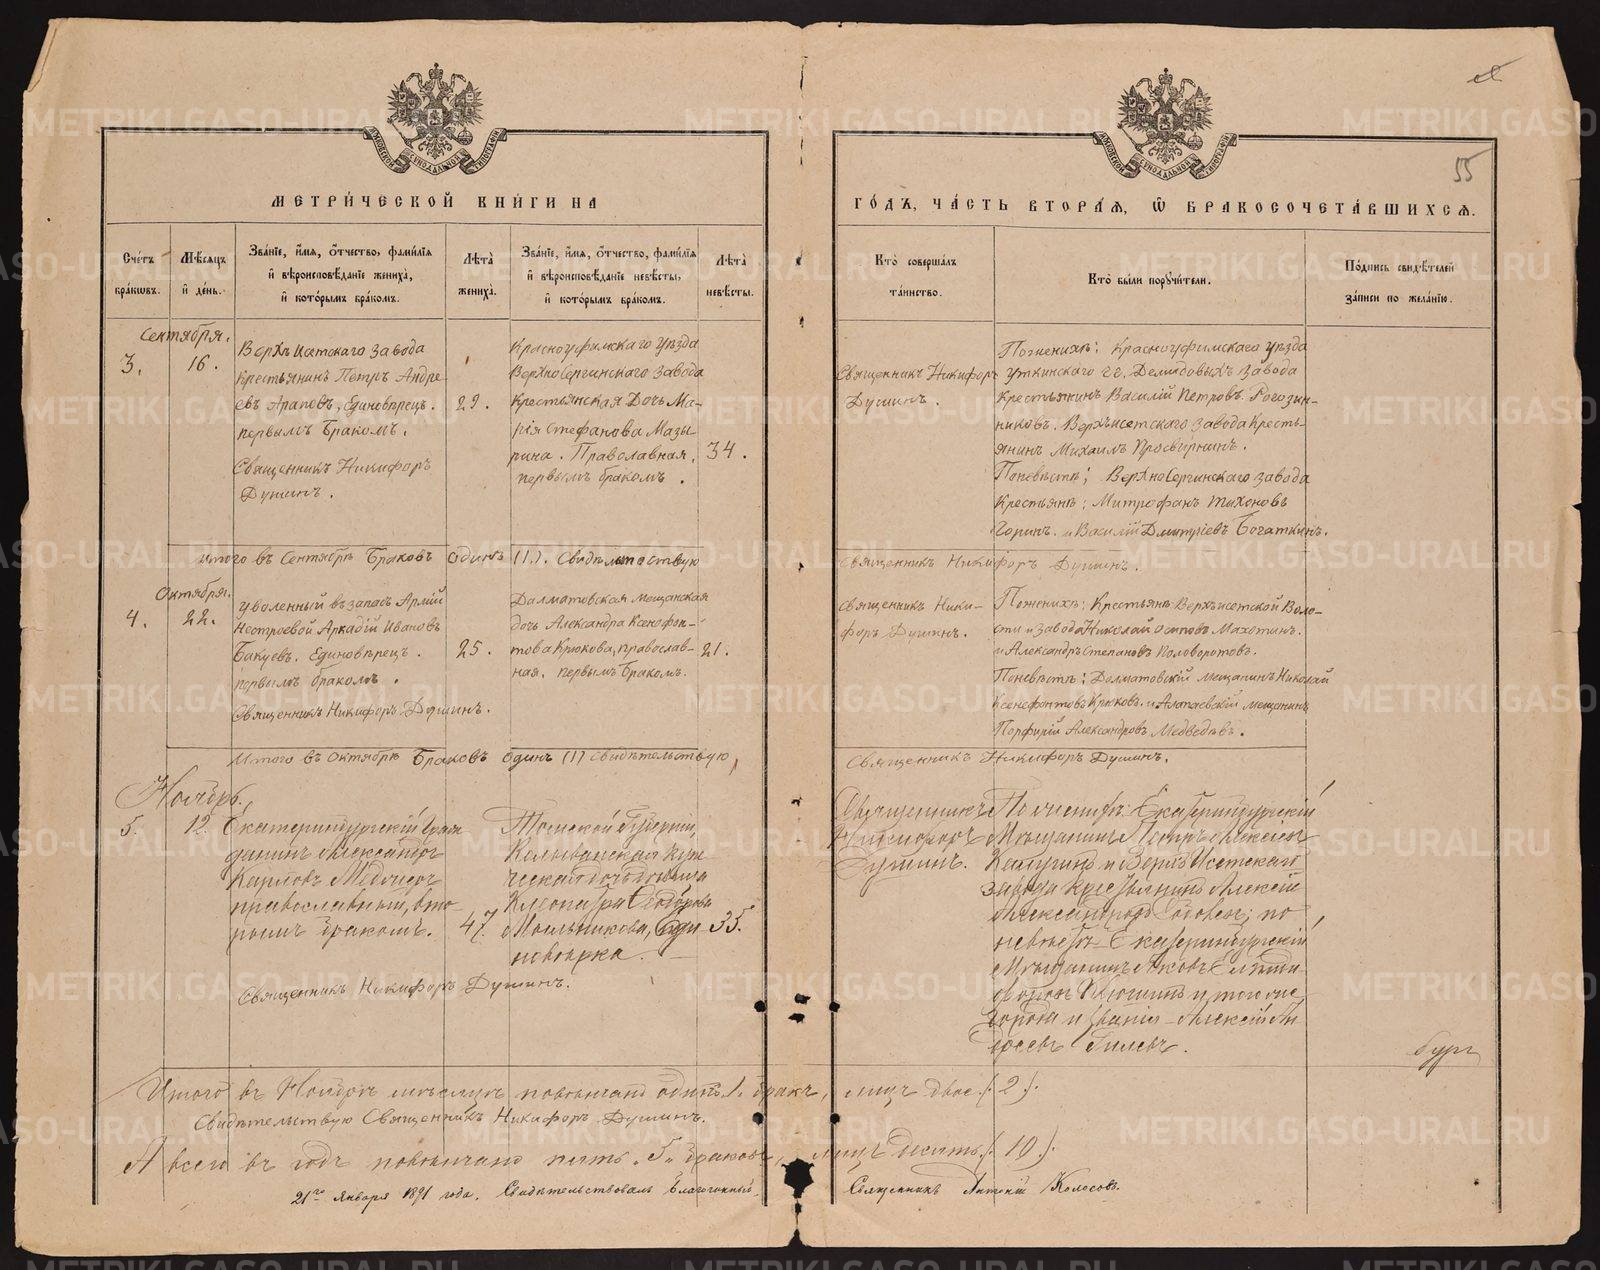 55
МЕТРИ́ЧЕСКОЙ КНИ́ГИ НА
ГО́ДЪ, ЧА́СТЬ ВТОРА́Я, Ѡ҆ БРАКОСОЧЕТА́ВШИХСЯ.
Сче́тъ бра́кωвъ.
Мѣ́сяцъ и҆ де́нь.
Зва́нїе, и҆́мя, ѻ҆́тчество, фами́лїя
и҆ вѣроисповѣ́данїе жениха̀,
и҆ кото́рымъ бра́комъ.
Лѣ́та жениха̀.
Зва́нїе, и҆́мя, ѻ҆́тчество, фами́лїя
и҆ вѣроисповѣ́данїе невѣ́сты,
и҆ кото́рымъ бра́комъ.
Лѣ́та невѣ́сты.
Кто̀ соверша́лъ
та́инство.
Кто̀ бы́ли порꙋчи́тели.
По́дпись свидѣ́телей
за́писи по жела́нїю.
Сентября.
3.
16.
Верхъ Исетскаго завода
крестьянинъ Петръ Андре-
евъ Араповъ, Единовѣрецъ.
первымъ бракомъ.
Священникъ Никифоръ
Душинъ.
29.
Красноуфимскаго уѣзда
ВерхноСергинскаго завода
крестьянская дочь Ма-
рія Стефанова Мазы-
рина. Православная,
первымъ бракомъ.
34.
Священникъ Никифоръ
Душинъ.
Поженихѣ: Красноуфимскаго уѣзда
Уткинскаго гг. Демидовыхъ завода
крестьянинъ Василій Петровъ Рогозин-
никовъ. Верхъисетскаго завода кресть-
янинъ Михаилъ Просвирнинъ.
Поневѣстѣ; ВерхноСергинскаго завода
крестьянѣ; Митрофанъ Тихоновъ
Горинъ. и Василій Дмитріевъ Богаткинъ.
Итого въ Сентябрѣ браковъ одинъ (1). Свидѣтельствую
Священникъ Никифоръ Душинъ.
Октября.
4.
22.
Уволенный въ запасъ Арміи
Нестроевой Аркадій Ивановъ
Бакуевъ. Единовѣрецъ.
первымъ бракомъ.
Священникъ Никифоръ Душинъ.
25.
Далматовская мещанская
дочь Александра Ксенофон-
това Крюкова, православ-
ная. первымъ бракомъ.
21.
Священникъ Ники-
форъ Душинъ.
Поженихѣ: Крестьянѣ Верхъисетской Воло-
сти и завода Николай Осиповъ Махотинъ.
и Александръ Степановъ Половоротовъ.
Поневѣстѣ: Долматовскій мещанинъ Николай
Ксенофонтовъ Крюковъ. и Алапаевскій мещанинъ
Порфирій Александровъ Медведѣвъ.
Итого въ Октябрѣ браковъ одинъ (1) Свидѣтельствую,
Священникъ Никифоръ Душинъ.
Ноябрь.
5.
12.
Екатеринбургскій граж
данинъ Александръ
Карловъ
православный, вто-
рымъ бракомъ.
Священникъ Никифоръ Душинъ.
47.
Томской Губерніи,
Колыванская купе
ческая дочь
Клеопатра Ѳеодорова
Мыльникова, еди-
новѣрка.
35.
Священникъ
Никифоръ
Душинъ.
По женихѣ: Екатеринбургскій
Мѣщанинъ Петръ Алексѣевъ
Калугинъ и Верхъ Исетскаго
завода крестьянинъ Алексѣй
Александровъ; по
невѣстѣ - Екатеринбургскій
Мѣщанинъ Яковъ
и того же
города и званія - Алексѣй Ан-
дреевъ Гилевъ.
Итого въ Ноябрѣ мѣсяцѣ повѣнчано одинъ 1. бракъ, лицъ двое (2).
Свидѣтельствую Священникъ Никифоръ Душинъ.
А всего въ годъ повѣнчано пять "5" браковъ, лицъ десять (10).
21го Января 1891 года. Свидѣтельствовалъ Благочинный,
Священникъ Антоній Колосовъ.
METRIKI.GASO-URAL.RU